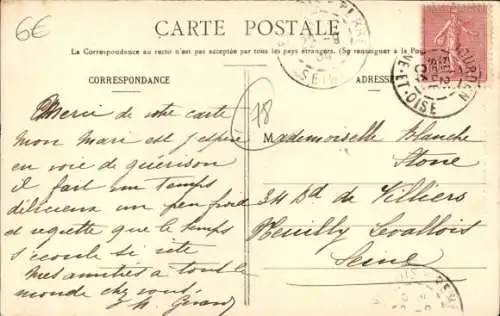 6€
CARTE POSTALE
La Correspondance au recto n'est pas acceptée par tous les pays étrangers. (Se renseigner à la Pos
CORRESPONDANCE
ADRESSE
78
Merci de votre carte
mon mari est j'espère
en voie de guérison
il fait un temps
délicieux un peu froid
et regrette que le temps
s'écoule si vite
Mes amitiés à tout le
monde chez vous.
Mademoiselle Blanche
Stone
34 Bd de Villiers
Neuilly Levallois
Seine
ET-OISE
SEINE